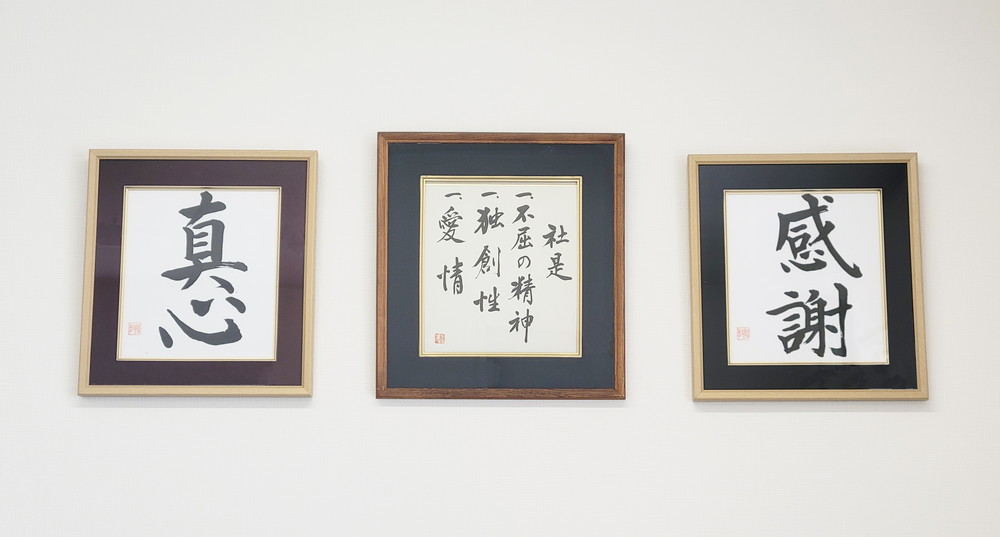 真心
社是
一、不屈の精神
一、独創性
一、愛情
感謝